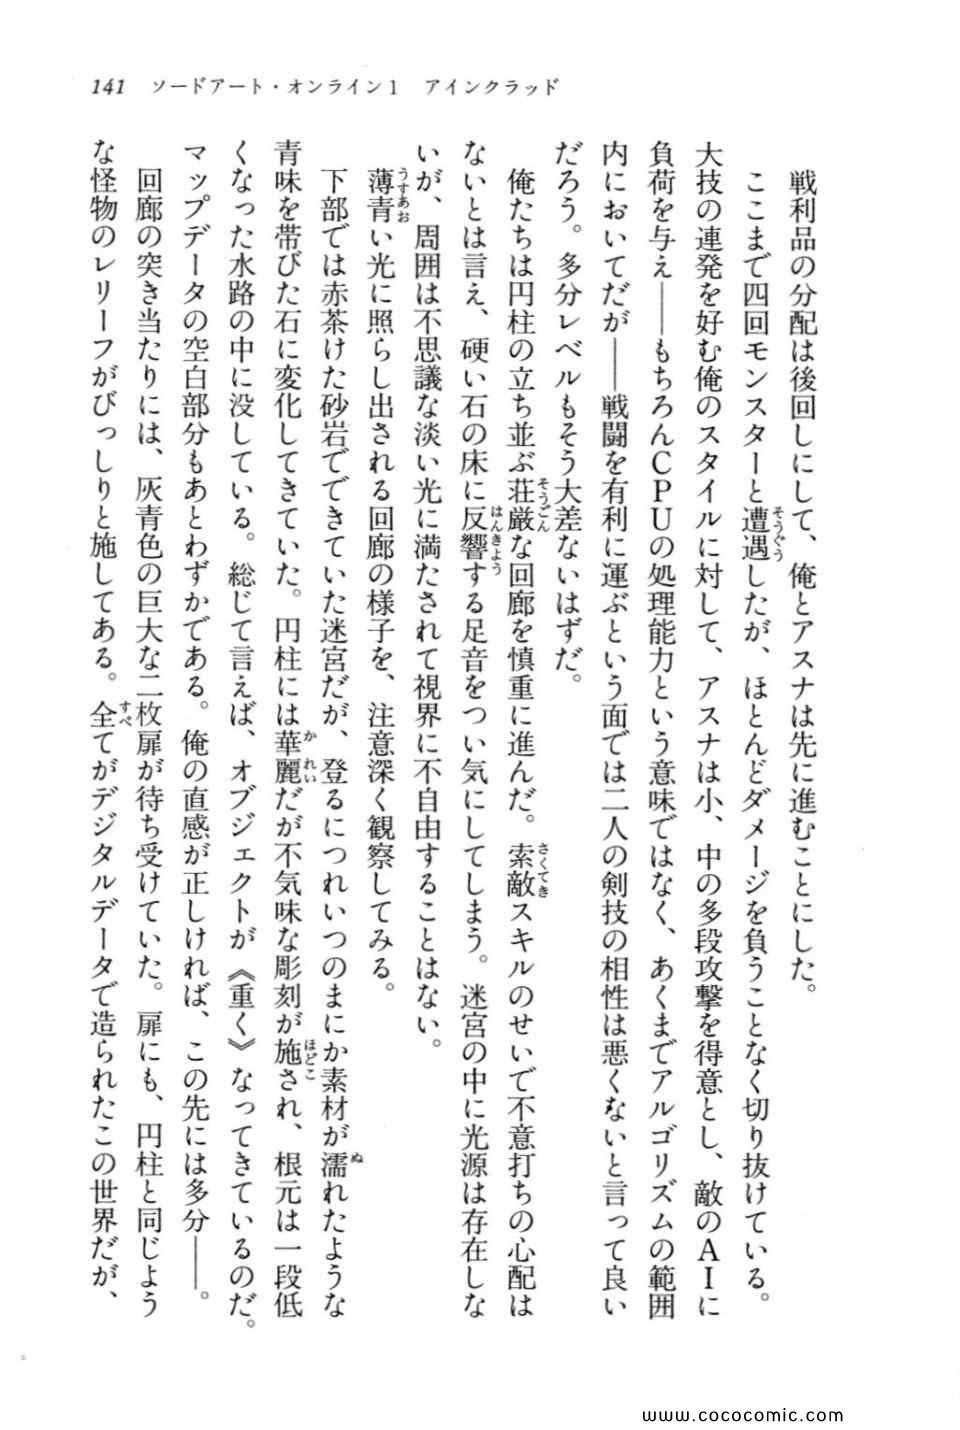 141 ソードアート・オンライン1 アインクラッド
戦利品の分配は後回しにして、俺とアスナは先に進むことにした。
ここまで四回モンスターと遭遇したが、ほとんどダメージを負うことなく切り抜けている。
大技の連発を好む俺のスタイルに対して、アスナは小、中の多段攻撃を得意とし、敵のAIに
負荷を与え――もちろんCPUの処理能力という意味ではなく、あくまでアルゴリズムの範囲
内においてだが――戦闘を有利に運ぶという面では二人の剣技の相性は悪くないと言って良い
だろう。多分レベルもそう大差ないはずだ。
俺たちは円柱の立ち並ぶ荘厳な回廊を慎重に進んだ。索敵スキルのせいで不意打ちの心配は
ないとは言え、硬い石の床に反響する足音をつい気にしてしまう。迷宮の中に光源は存在しな
いが、周囲は不思議な淡い光に満たされて視界に不自由することはない。
薄青い光に照らし出される回廊の様子を、注意深く観察してみる。
下部では赤茶けた砂岩でできていた迷宮だが、登るにつれいつのまにか素材が濡れたような
青味を帯びた石に変化してきていた。円柱には華麗だが不気味な彫刻が施され、根元は一段低
くなった水路の中に没している。総じて言えば、オブジェクトが《重く》なってきているのだ。
マップデータの空白部分もあとわずかである。俺の直感が正しければ、この先には多分――。
回廊の突き当たりには、灰青色の巨大な二枚扉が待ち受けていた。扉にも、円柱と同じよう
な怪物のレリーフがびっしりと施してある。全てがデジタルデータで造られたこの世界だが、
www.cococomic.com